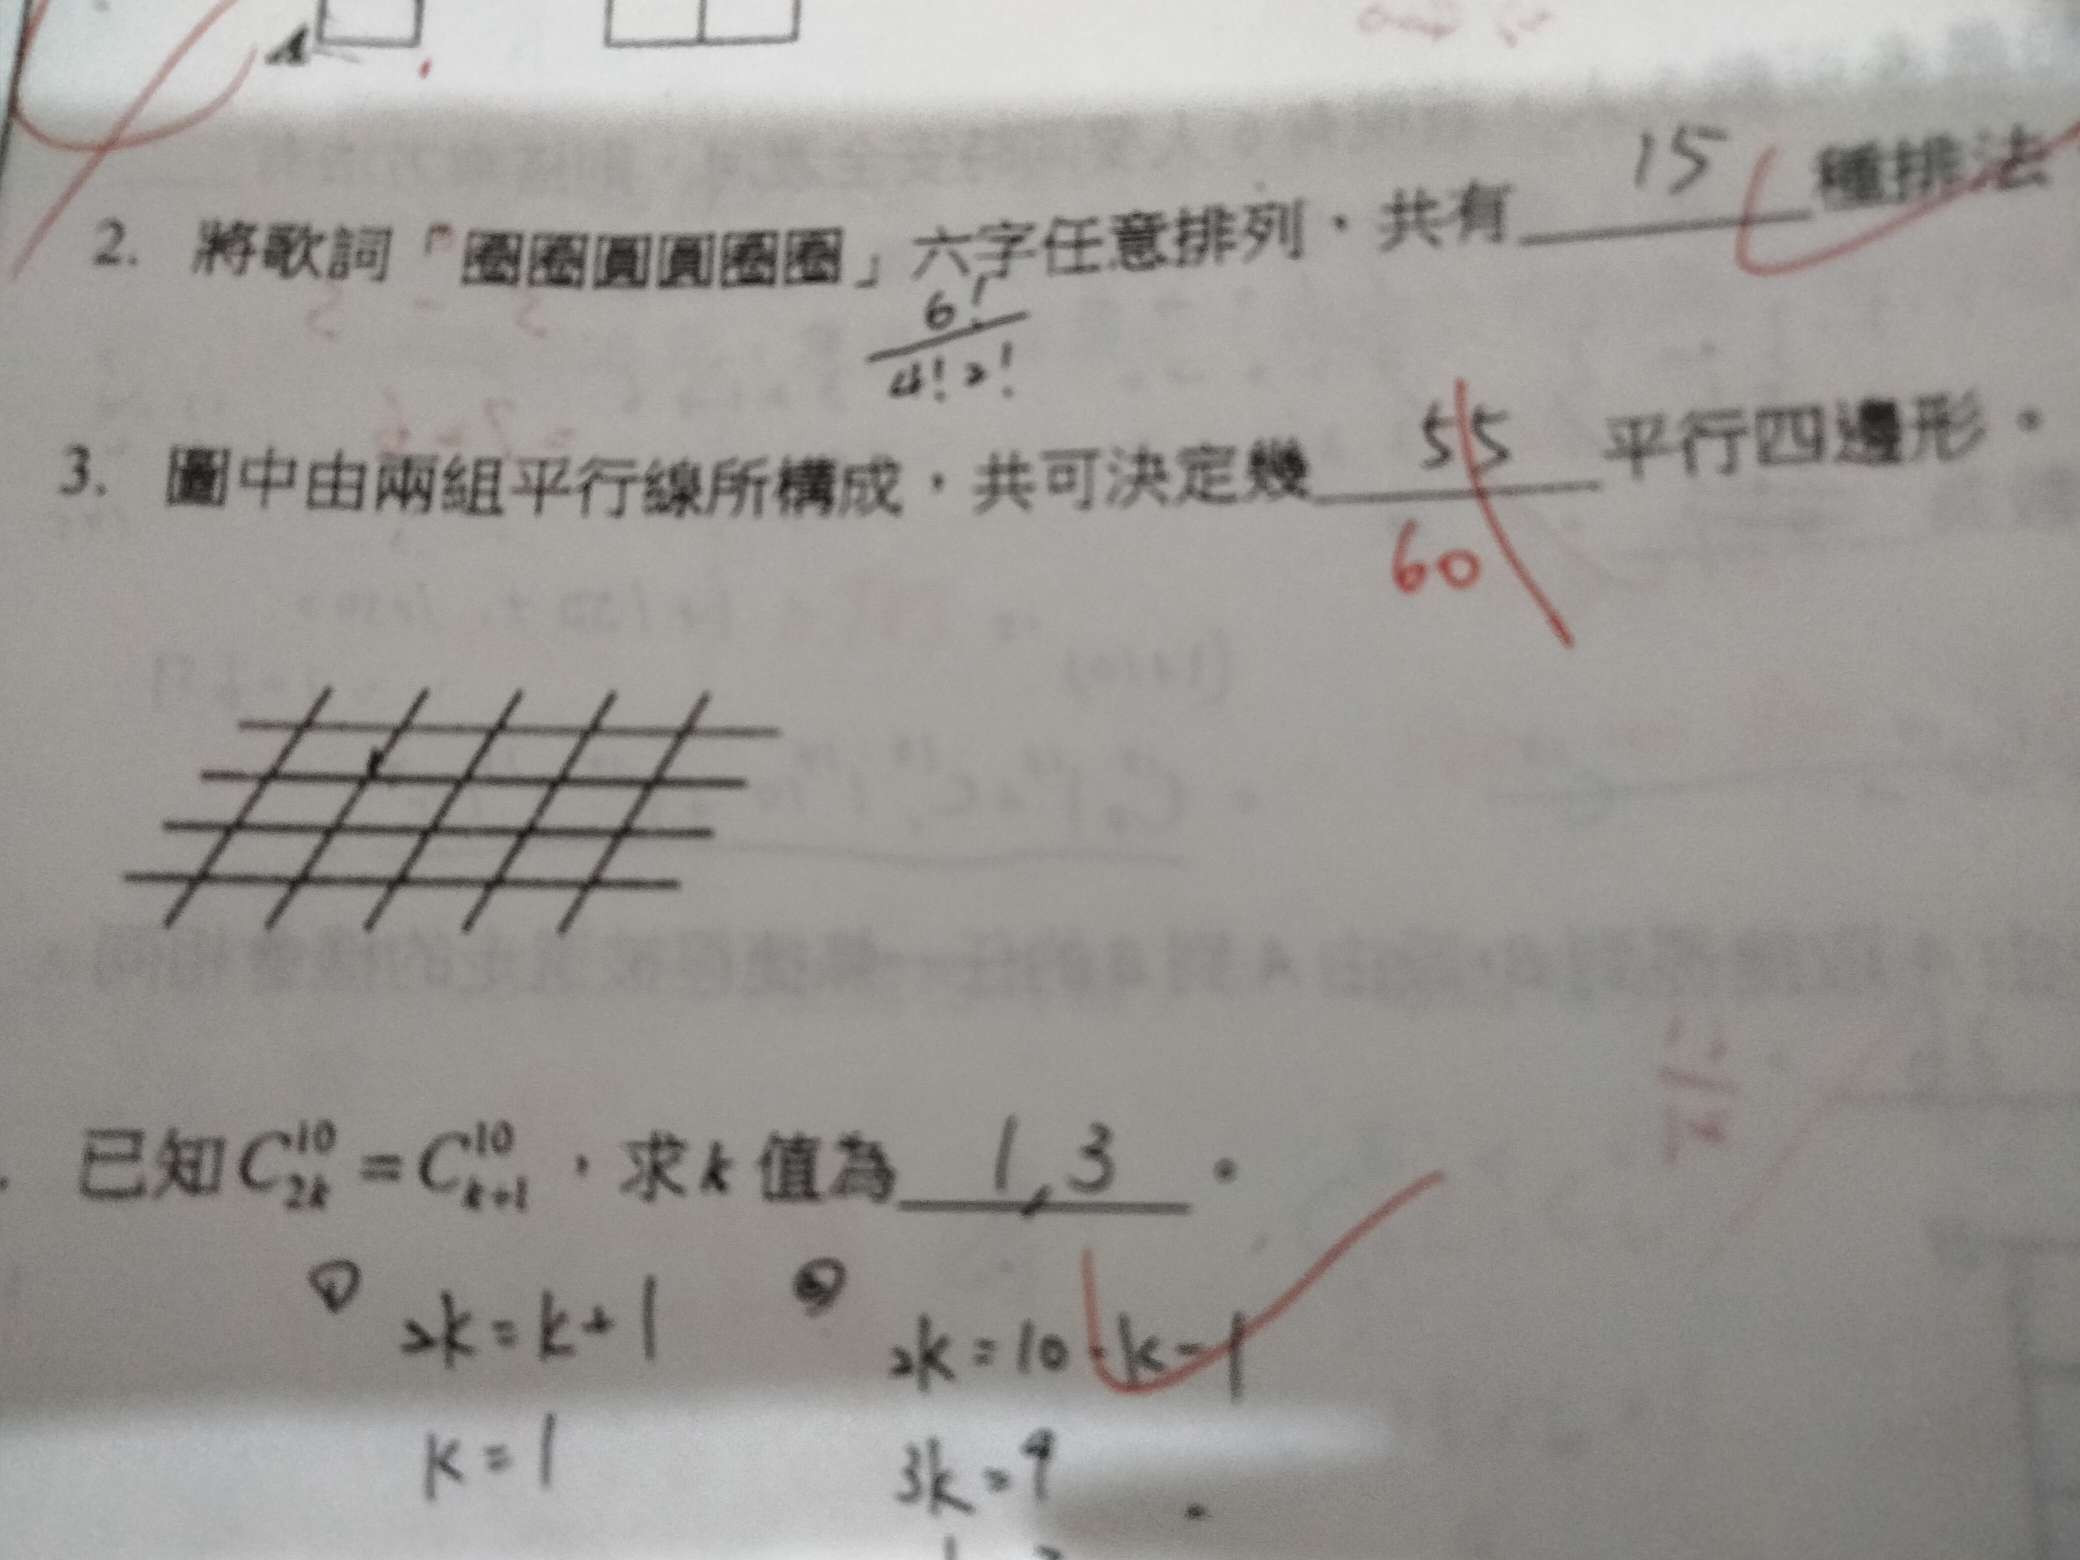 A
2. 將歌詞「圈圈圓圓圈圈」六字任意排列,共有 15 種排法
6!
4!2!
3. 圖中由兩組平行線所構成,共可決定幾 55 平行四邊形。
60
已知 C^{10}_{2k} = C^{10}_{k+1},求 k 值為 1,3 。
① 2k=k+1 ② 2k=10-k-1
k=1 3k=9